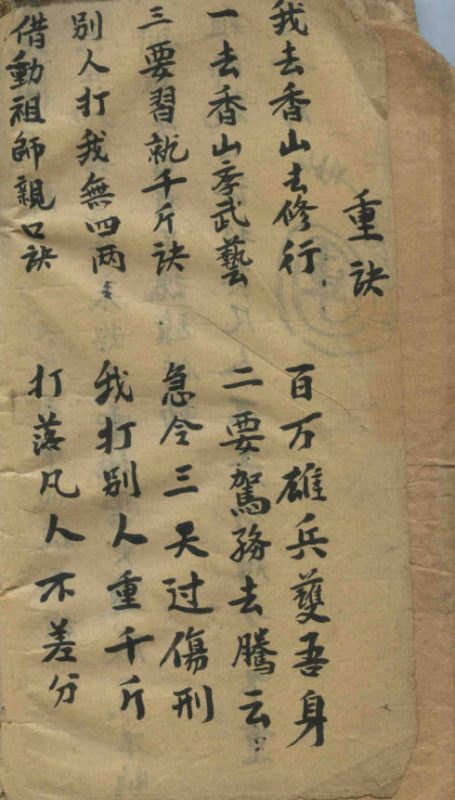 重訣
我去香山去修行 百万雄兵護吾身
一去香山孝武藝 二要駕務去騰云
三要習就千斤訣 急令三天过傷刑
別人打我無四两 我打別人重千斤
借動祖師親口訣 打落凡人不差分